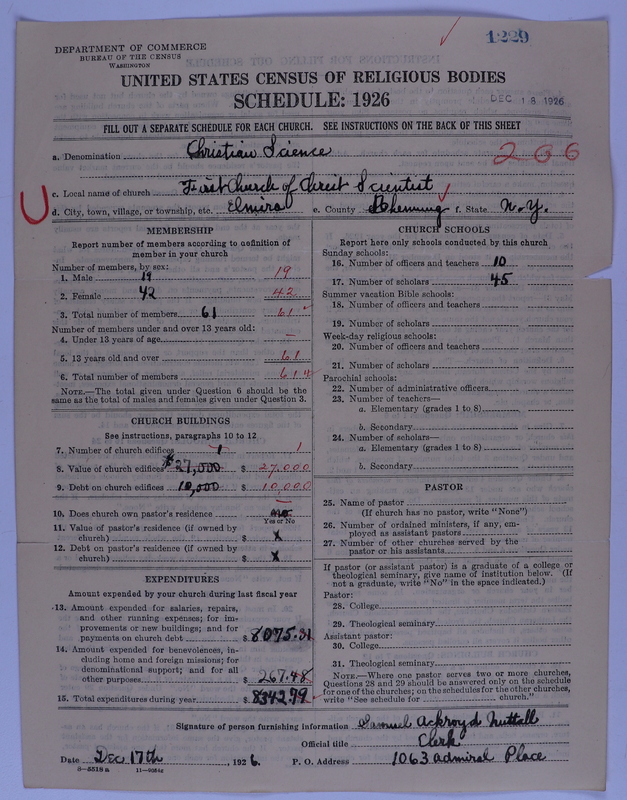 1229
DEPARTMENT OF COMMERCE
BUREAU OF THE CENSUS
WASHINGTON
UNITED STATES CENSUS OF RELIGIOUS BODIES
SCHEDULE: 1926
DEC 18 1926
FILL OUT A SEPARATE SCHEDULE FOR EACH CHURCH. SEE INSTRUCTIONS ON THE BACK OF THIS SHEET
a. Denomination Christian Science
266
c. Local name of church First Church of Christ Scientist
d. City, town, village, or township, etc. Elmira e. County Chemung f. State N.Y.
MEMBERSHIP
Report number of members according to definition of
member in your church
Number of members, by sex:
1. Male 19 19
2. Female 42 42
3. Total number of members 61 61
Number of members under and over 13 years old:
4. Under 13 years of age –
5. 13 years old and over 61
6. Total number of members 61
NOTE.—The total given under Question 6 should be the
same as the total of males and females given under Question 3.
CHURCH BUILDINGS
See instructions, paragraphs 10 to 12
7. Number of church edifices 1 1
8. Value of church edifices $27,000 $ 27,000
9. Debt on church edifices 10,000 $ 10,000
10. Does church own pastor's residence no
Yes or No
11. Value of pastor's residence (if owned by
church) $ x
12. Debt on pastor's residence (if owned by
church) $ x
EXPENDITURES
Amount expended by your church during last fiscal year
13. Amount expended for salaries, repairs,
and other running expenses; for im-
provements or new buildings; and for
payments on church debt $ 8075.31
14. Amount expended for benevolences, in-
cluding home and foreign missions; for
denominational support; and for all
other purposes $ 267.48
15. Total expenditures during year $ 8342.79
CHURCH SCHOOLS
Report here only schools conducted by this church
Sunday schools:
16. Number of officers and teachers 10
17. Number of scholars 45
Summer vacation Bible schools:
18. Number of officers and teachers
19. Number of scholars
Week-day religious schools:
20. Number of officers and teachers
21. Number of scholars
Parochial schools:
22. Number of administrative officers
23. Number of teachers—
a. Elementary (grades 1 to 8)
b. Secondary
24. Number of scholars—
a. Elementary (grades 1 to 8)
b. Secondary
PASTOR
25. Name of pastor
(If church has no pastor, write "None")
26. Number of ordained ministers, if any, em-
ployed as assistant pastors
27. Number of other churches served by the
pastor or his assistants
If pastor (or assistant pastor) is a graduate of a college or
theological seminary, give name of institution below. (If
not a graduate, write "No" in the space indicated.)
Pastor:
28. College
29. Theological seminary
Assistant pastor:
30. College
31. Theological seminary
NOTE.—Where one pastor serves two or more churches,
Questions 28 and 29 should be answered only on the schedule
for one of the churches; on the schedules for the other churches,
write "See schedule for church."
Signature of person furnishing information Samuel Ackroyd Nuttall
Official title Clerk
Date Dec 17th, 1926. P. O. Address 1063 Admiral Place
8—5518 a